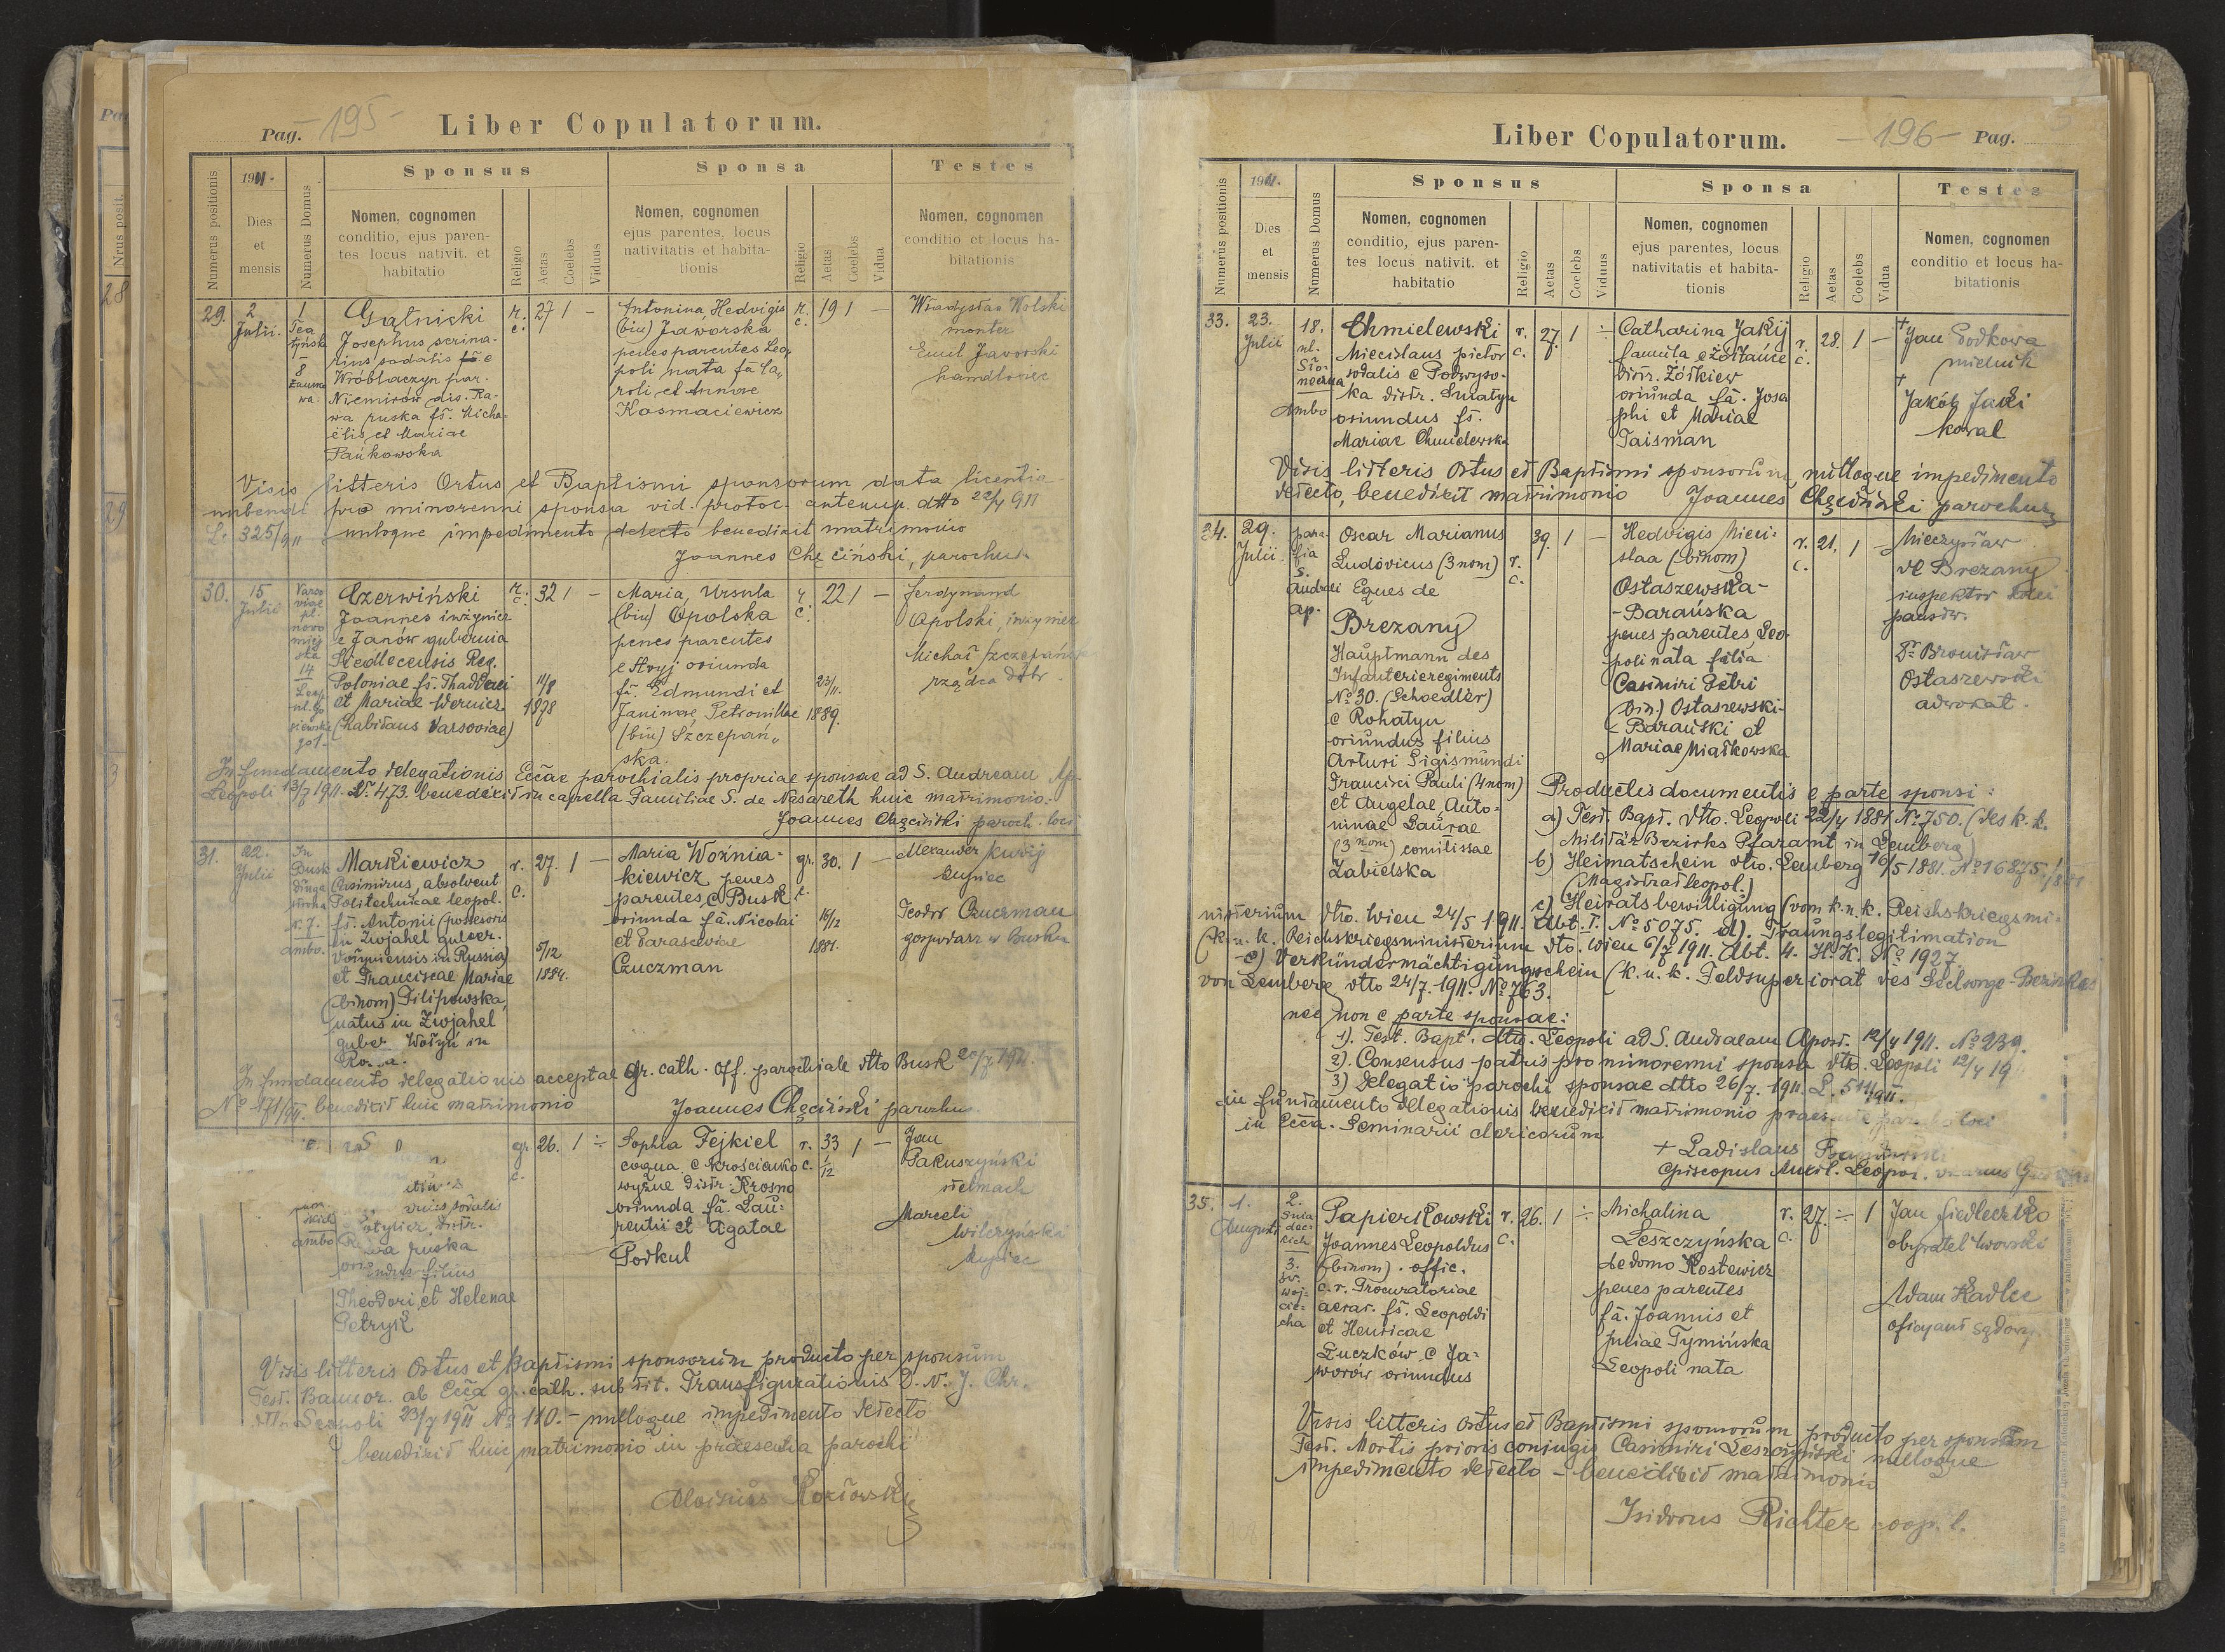 Pag. -195-
Liber Copulatorum.
Numerus positionis
1911.
Dies
et
mensis
Numerus Domus
Sponsus
Nomen, cognomen
conditio, ejus paren-
tes locus nativit. et
habitatio
Religio
Aetas
Coelebs
Viduus
Sponsa
Nomen, cognomen
ejus parentes, locus
nativitatis et habita-
tionis
Religio
Aetas
Coelebs
Vidua
Testes
Nomen, cognomen
conditio et locus ha-
bitationis
29.
2
Julii.
1
Tea
tyńska
8
Gątnicki
Josephus scrina-
rius sodalis e
Wróblaczyn par.
Niemirów dis. Ra-
wa ruska fs. Micha-
ëlis et Mariae
Pańkowska
r.
c.
27
1
-
Antonina, Hedvigis
(bin) Jaworska
penes parentes Leo,
poli nata fa Ca,
roli, et Annae
Kosmaciewicz
r.
c.
19
1
-
Władysław Wolski
monter
Emil Jaworski
handlowiec
Visis litteris Ortus et Baptismi sponsorum data licentia
nubendi pro minorenni sponsa vid. protoc. antenup. dtto 22/4 911
L. 325/911 nulloque impedimento detecto benedixit matrimonio
Joannes Chęciński, parochus
30.
15
Julii
Varso
viae
pl.
nowo
miej
ska
14
Leop.
Czerwiński
Joannes inżynier
e Janów gubernia
Siedlecensis Reg.
Poloniae fs. Thaddaei
et Mariae Wernicz
(habitans Varsoviae)
r.
c.
32
1
-
11/8
1878
Maria, Ursula
(bin) Opolska
penes parentes
e Stryj oriunda
fa. Edmundi et
Janinae, Petronillae
(bin) Szczepań,
ska.
r.
c.
22
1
-
23/11.
1889.
Ferdynand
Opolski, inżynier
Michał Szczepański
rządca dóbr.
In fundamento delegationis Eccae parochialis propriae sponsae ad S. Andream Ap.
Leopoli 13/7 1911. N. 473. benedixit in capella Familiae S. de Nasareth huic matrimonio.
Joannes Chęciński paroch. loci
31.
22.
Julii
In
Busk
N. 7.
ambo.
Markiewicz
Casimirus, absolvent
Politechnicae leopol.
fs. Antonii (possesoris
in Zwjahel guber.
Volyniensis in Russia)
et Franciscae Mariae
(binom) Filipowska,
natus in Zwjahel
guber. Wołyń in
r.
c.
27.
1
-
5/12
1884.
Maria Woźnia-
kiewicz penes
parentes, e Busk
oriunda fa. Nicolai
et Parascewiae
Czuczman
gr.
c.
30.
1
-
16/12
1881.
Alexander Kuryj
kupiec
Teodor Czuczman
gospodarz w Busku
In fundamento delegationis acceptae gr. cath. off. parochiale dtto Busk 20/7 1911.
No 171/VII. benedixit huic matrimonio
Joannes Chęciński parochus.
ambo
sodalis
distr.
ruska
filius
Theodori, et Helenae
Petryk
gr.
c.
26.
1
÷
Sophia Fejkiel
coqua e Krościenko
wyżne distr. Krosno
oriunda fa. Lau-
rentii et Agatae
Podkul
r.
c.
33
1/12
1
-
Jan
Pakuszyński
stelmach
Marceli
Wilczyński
kupiec
Visis litteris Ortus et Baptismi sponsorum producto per sponsum
Test. Bannor. ab Ecca gr. cath. sub tit. Transfigurationis D. N. J. Chr.
dtto Leopoli 23/7 1911 No 110.- nulloque impedimento detecto
benedixit huic matrimonio in praesentia parochi
Aloisius Kozłowski
Liber Copulatorum.
-196- Pag.
Numerus positionis
1911.
Dies
et
mensis
Numerus Domus
Sponsus
Nomen, cognomen
conditio, ejus paren-
tes locus nativit. et
habitatio
Religio
Aetas
Coelebs
Viduus
Sponsa
Nomen, cognomen
ejus parentes, locus
nativitatis et habita-
tionis
Religio
Aetas
Coelebs
Vidua
Testes
Nomen, cognomen
conditio et locus ha-
bitationis
33.
23.
Julii
18.
ul.
Sło-
neczna
Ambo
Chmielewski
Miecislaus pictor
sodalis e Podwyso-
ka distr. Sniatyn
oriundus fs.
Mariae Chmielewska
r.
c.
27.
1
÷
Catharina Jakij
famula e Żółtańce
distr. Żółkiew
oriunda fa. Jose
phi et Mariae
Taisman
r.
c.
28.
1
-
+
Jan Podkowa
mielnik
+
Jakób Jaki
kowal
Visis litteris Ortus et Baptismi sponsorum, nulloque impedimento
detecto, benedixit matrimonio Joannes Chęciński parochus
34.
29.
Julii.
para-
fia
S.
Andreae
Ap.
Oscar Marianus
Ludovicus (3 nom)
Eques de
Brezany
Hauptmann des
Infanterieregiments
No 30. (Schoedler)
e Rohatyn
oriundus filius
Arturi Sigismundi
Francisci Pauli (4 nom)
et Angelae Anto-
ninae Laurae
(3 nom) comitissae
Zabielska
r.
c.
39.
1
-
Hedvigis Mieci-
slaa (binom)
Ostaszewska-
-Barańska
penes parentes, Leo-
poli nata filia
Casimiri Petri
(bin.) Ostaszewski-
- Barański et
Mariae Miałkowska
r.
c.
21.
1
-
Mieczysław
de Brezany
inspektor kolei
państw.
Dr Bronisław
Ostaszewski
adwokat.
Productis documentis e parte sponsi:
a) Test. Bapt. dtto. Leopoli 22/4 1881 No 750. (des k. k.
Militär Bezirks Pfaramt in Lemberg)
b) Heimatschein dtto. Lemberg 16/5 1881. No 16875/1881
(Magistrat leopol.)
c) Heiratsbewilligung (vom k. u. k. Reichskriegsmi-
nisterium dtto. Wien 24/5 1911. Abt. I. No 5075. d). Trauungslegitimation
(k. u. k. Reichskriegsministerium dto. Wien 6/7 1911. Abt. 4. H. K. No 1927.
e) Verkündermächtigungschein (k. u. k. Feldsuperiorat des Seelsorge-Bezirkes
von Lemberg dtto 24/7. 1911. No 763.
nec non e parte sponsae:
1). Test. Bapt. dtto. Leopoli ad S. Andraeam Apost. 12/4 1911. No 239.
2). Consensus patris pro minorenni sponsa dtto. Leopoli 12/4 19
3) Delegatio parochi sponsae dtto 26/7. 1911. L. 514/911.
in fundamento delegationis benedixit matrimonio loci
in Ecca. Seminarii clericorum
+ Ladislaus
Episcopus Auxil. Leopol.
35.
1.
Augusti
2.
Śnia
dec-
kich
3.
św.
Woj-
cie-
cha
Papierkowski
Joannes Leopoldus
(binom). offic.
c. r. Procuratoriae
aerar. fs. Leopoldi
et Henricae
Luczków, e Ja-
worów oriundus
r.
c.
26.
1
÷
Michalina
Leszczyńska
de domo Kostewicz
penes parentes
fa. Joannis et
Juliae Tymińska
Leopoli nata
r.
c.
27.
÷
1
Jan Siedleczko
obywatel lwowski
Adam Kadlec
oficyant sądowy
Visis litteris Ortus et Baptismi sponsorum, producto per sponsam
Test. Mortis prioris conjugis Casimiri Leszczyński nulloque
impedimento detecto - benedixit matrimonio
Isidorus Richter coop. l.